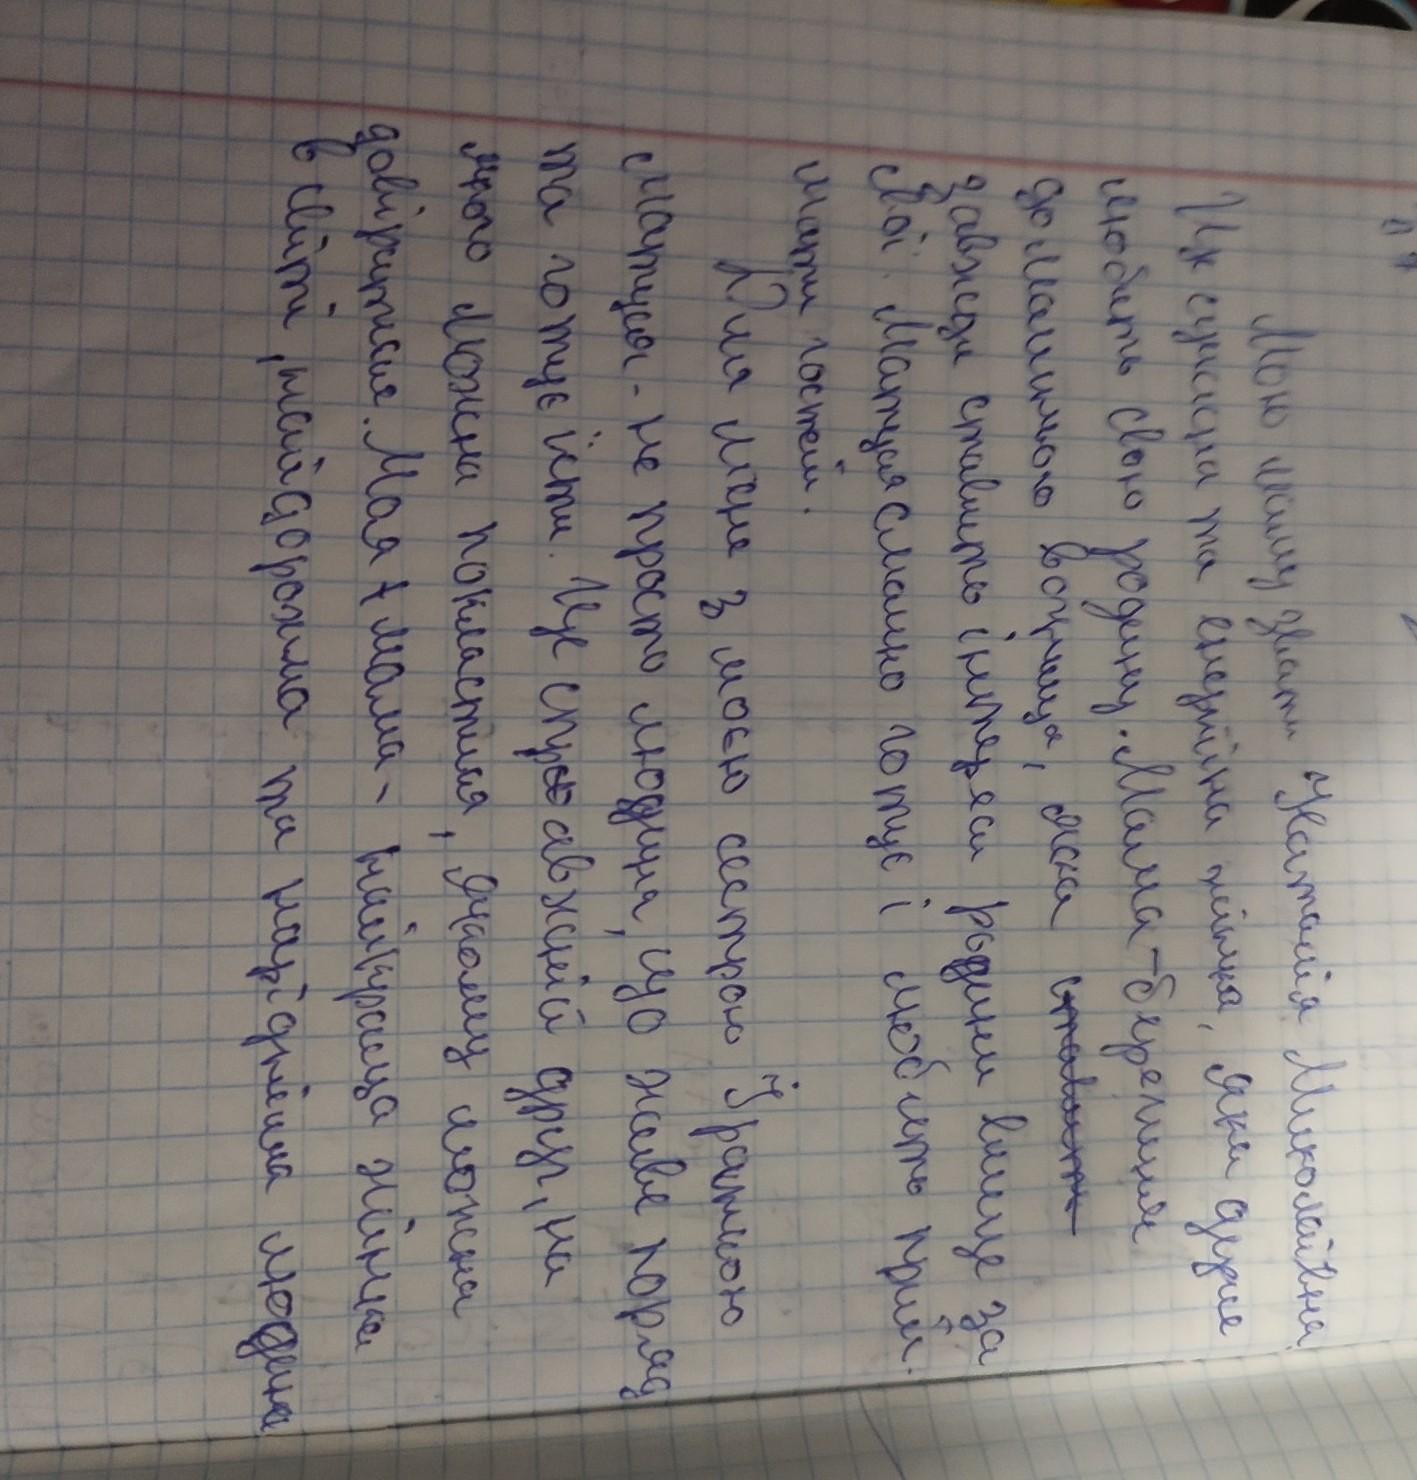 Мою маму звати Наталія Миколаївна.
Це сучасна та енергійна жінка, яка дуже
любить свою родину. Мама-берегиня
домашнього вогнища, яка ставит
завжди ставить інтереси родини вище за
свої. Матуся смачно готує і любить прий-
мати гостей.
Для мене з моєю сестрою Іриною
матуся - не просто людина, що живе поряд
та готує їсти. Це справжній друг, на
якого можна покластися, якому можна
довіритися. Моя мама - найкраща жінка
в світі, найдорожча та найрідніша людина